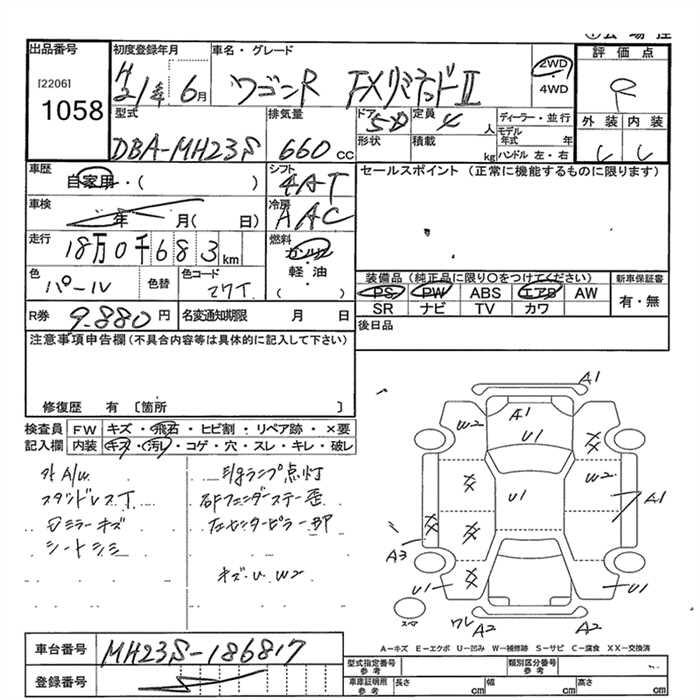 出品番号
[2206]
1058
初度登録年月
H21年 6月
車名・グレード
ワゴンR FXリミテッドII
2WD
4WD
評価点
R
外装 内装
型式
DBA-MH23S
排気量
660 cc
ドア
5D
形状
定員
4 人
積載
kg
ディーラー・並行
モデル年式 年
ハンドル 左・右
車歴
自家用・( )
シフト
4AT
セールスポイント (正常に機能するものに限ります)
車検
年 月( 日)
冷房
AAC
走行
18万0千683 km
燃料
ガソリン
軽・油
( )
色
パール
色替
色コード
Z7T
装備品 (純正品に限り○をつけてください)
PS PW ABS エアB AW
SR ナビ TV カワ
新車保証書
有・無
R券
9.880 円
名変通知期限 月 日
後日品
注意事項申告欄(不具合内容等は具体的に記入して下さい)
修復歴 有 〔箇所 〕
検査員記入欄
FW キズ・飛石・ヒビ割・リペア跡・×要
内装 キズ・汚レ・コゲ・穴・スレ・キレ・破レ
外A/W
スタッドレスT
ミラーキズ
シートシミ
ランプ点灯
右Fフェンダーステー歪
左センターピラー
キズ・U・W2
A1
A1
W2
U1
XX
XX
W2
U1
A1
XX
XX
A3
XX
U1
U1
スペア
ワレ
A2
A2
A-キズ E-エクボ U-凹み W-補修跡 S-サビ C-腐食 XX-交換済
車台番号
MH23S-186817
登録番号
型式指定番号
参考
類別区分番号
参考
車庫証明用
参考
長さ cm
幅 cm
高さ cm